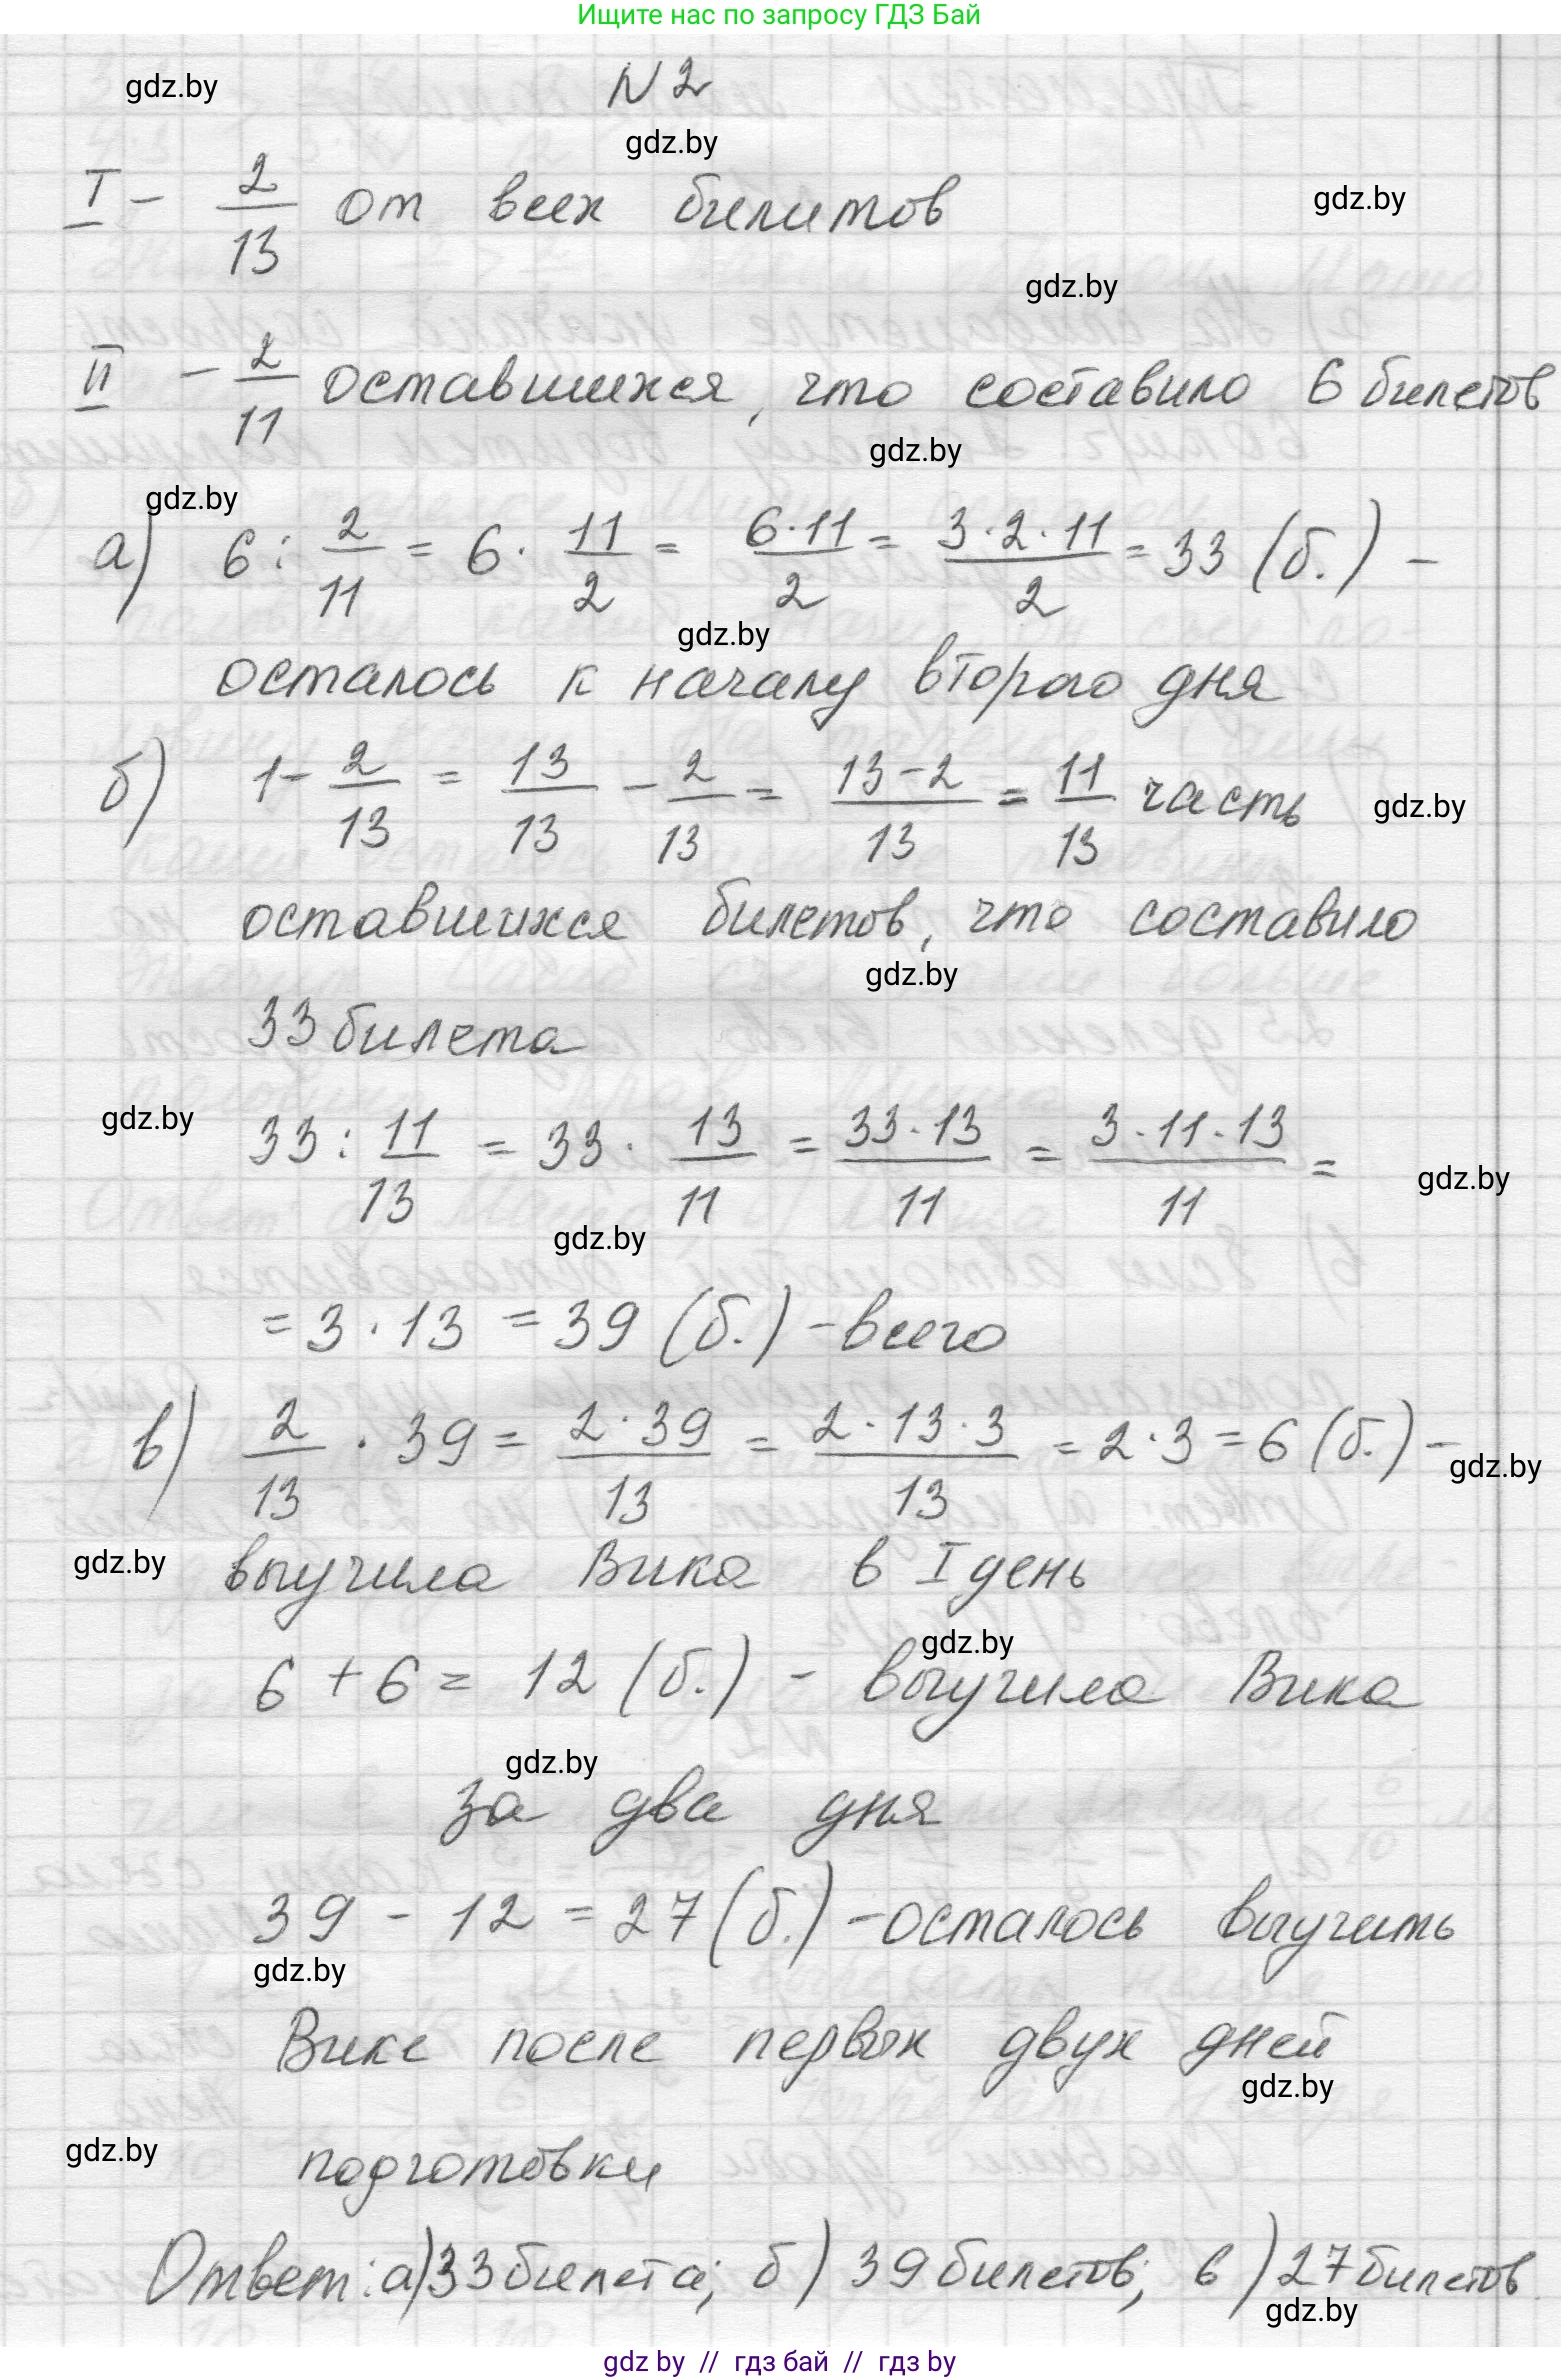 Ищите нас по запросу ГДЗ Бай
gdz.by
N 2
gdz.by
I - 2/13 от всех билетов
gdz.by
gdz.by
II - 2/11 оставшихся, что составило 6 билетов
gdz.by
gdz.by
а) 6 : 2/11 = 6 · 11/2 = 6·11/2 = 3·2·11/2 = 33 (б.) -
gdz.by
осталось к началу второго дня
б) 1 - 2/13 = 13/13 - 2/13 = 13-2/13 = 11/13 часть
gdz.by
оставшихся билетов, что составило
gdz.by
33 билета
gdz.by
33 : 11/13 = 33 · 13/11 = 33·13/11 = 3·11·13/11 =
gdz.by
gdz.by
= 3 · 13 = 39 (б.) - всего
в) 2/13 · 39 = 2·39/13 = 2·13·3/13 = 2·3 = 6 (б.) -
gdz.by
gdz.by
выучила Вика в I день
gdz.by
6 + 6 = 12 (б.) - выучила Вика
gdz.by
за два дня
39 - 12 = 27 (б.) - осталось выучить
gdz.by
Вике после первых двух дней
gdz.by
gdz.by
подготовки
Ответ: а) 33 билета; б) 39 билетов; в) 27 билетов
gdz.by
gdz by // гдз бай // гдз by